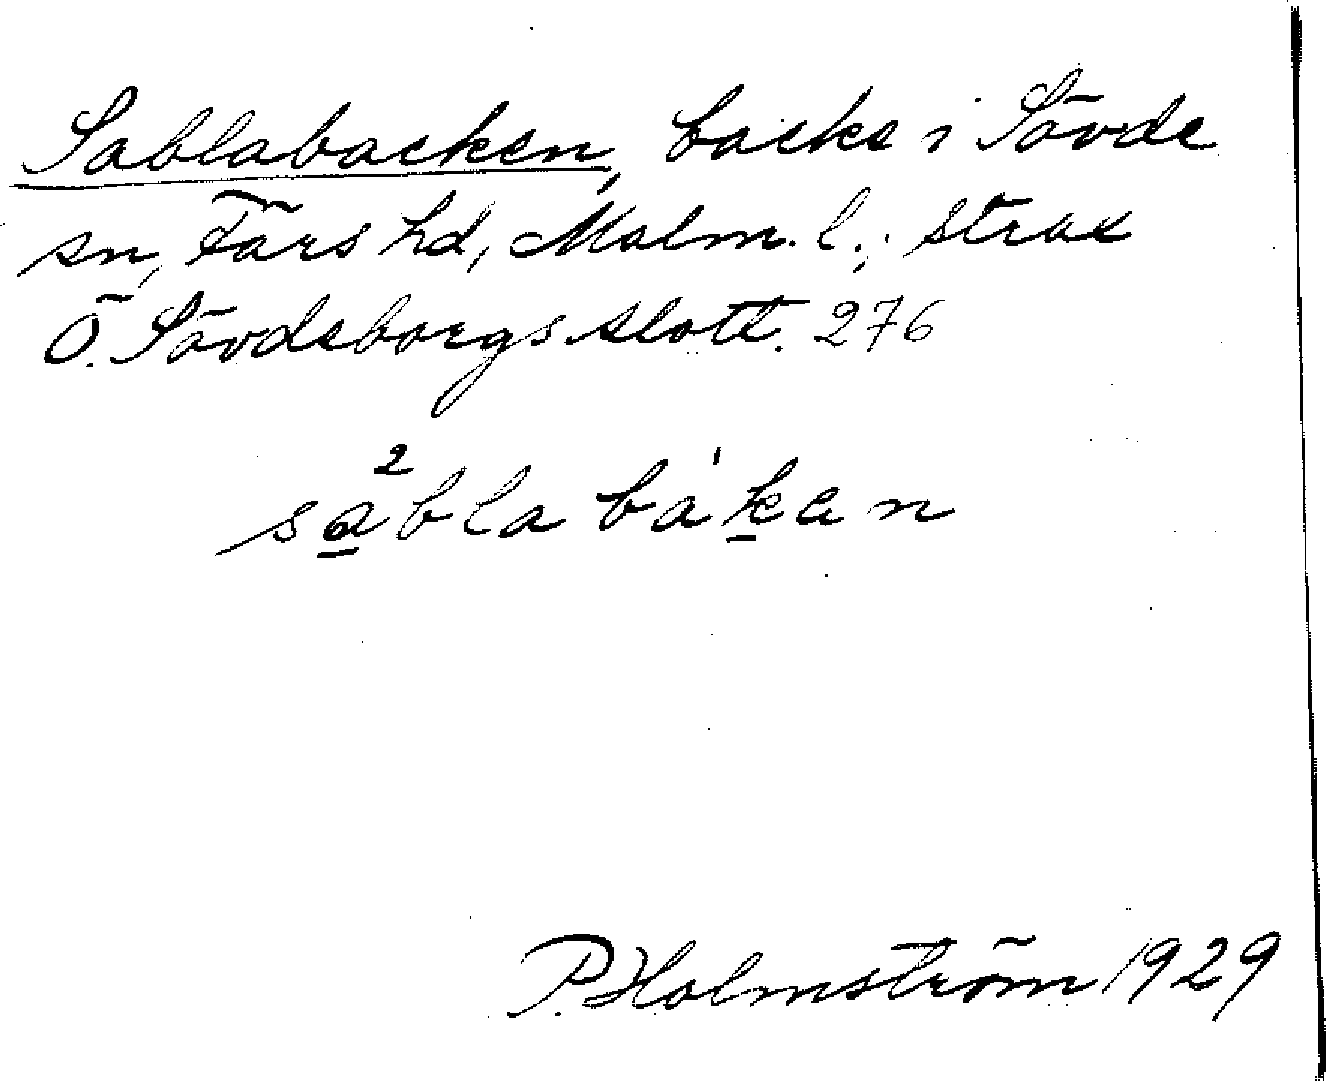 Sablabacken, backe i Sövde
sn, Färs hd, Malm. l.; strax
Ö. Sövdeborgs slott. 276
sa²bla ba'ken
P. Holmström 1929